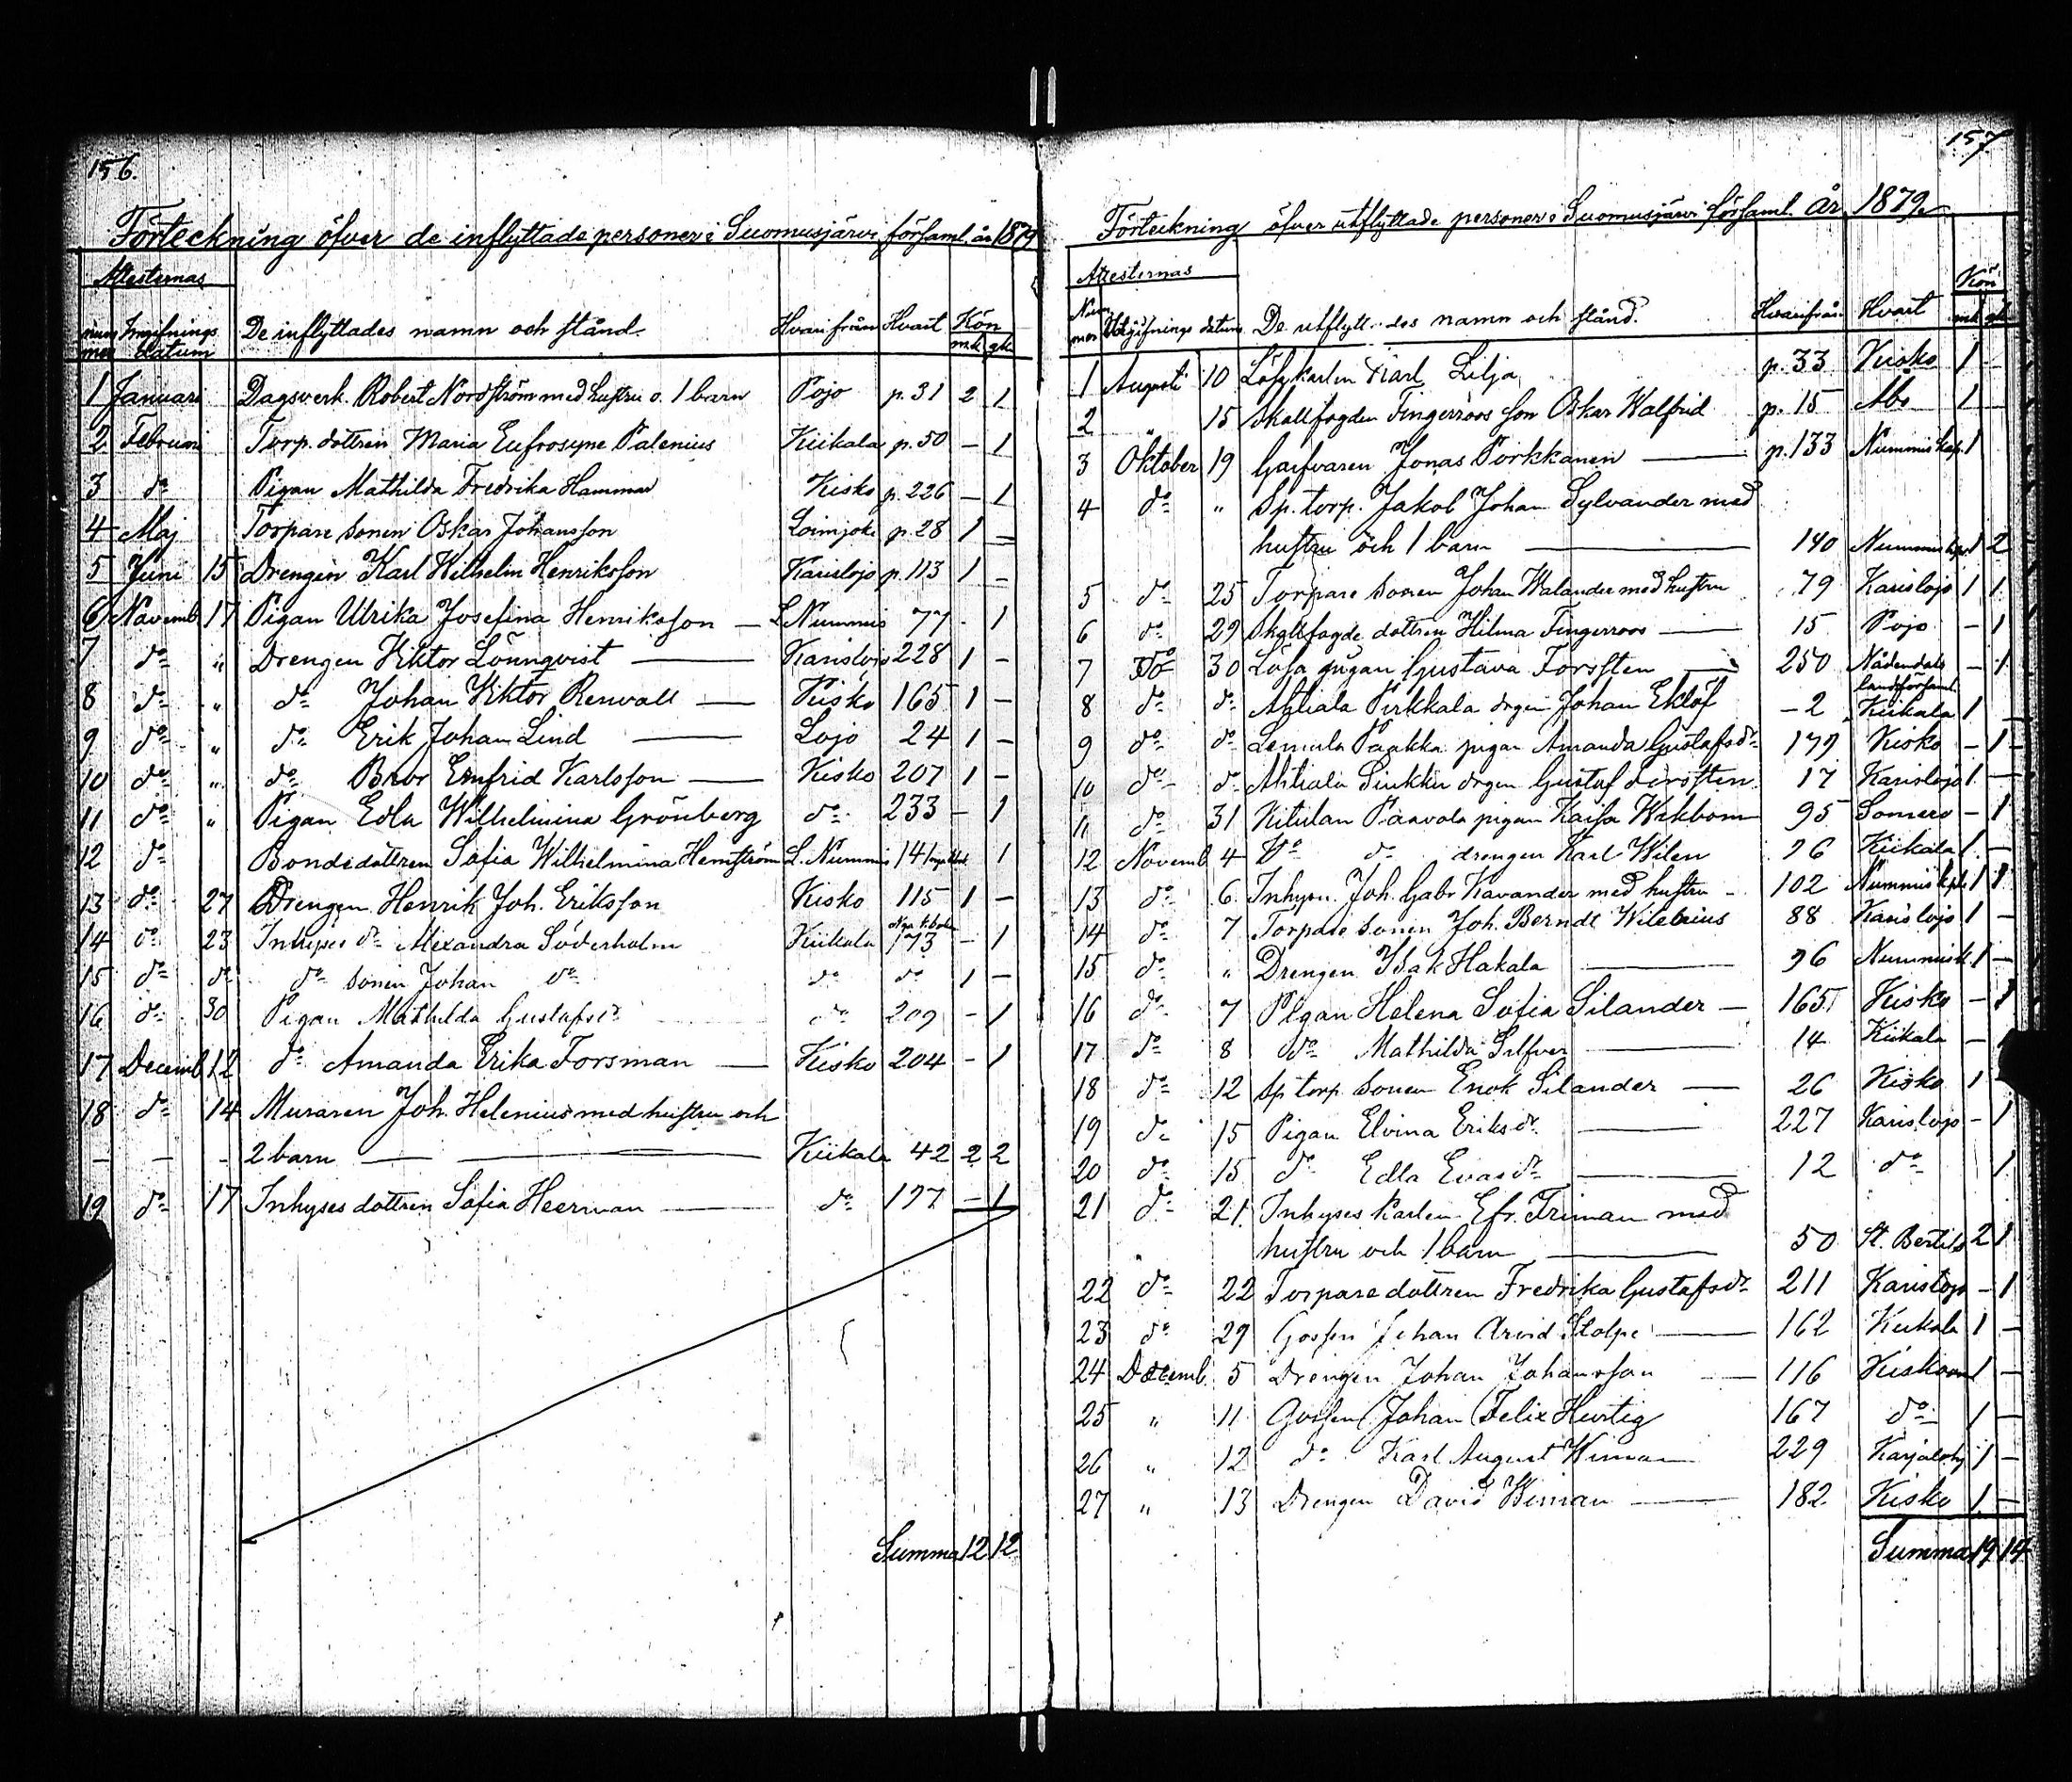 156.
Förteckning öfver de inflyttade personer i Suomusjärvi församl. år 1879
Attesternas
num mer Ingifnings datum De inflyttades namn och stånd. Hvarifrån Hvart Kön
m.k. qk.
1 Januari Dagsverk. Robert Nordström med hustru o. 1 barn Pojo p. 31 2 1
2 Februari Torp. dottren Maria Eufrosyne Palenius Kiikala p. 50 – 1
3 do Pigan Mathilda Fredrika Hammar Kisko p. 226 – 1
4 Maj Torpare sonen Oskar Johansson Loimjoki p. 28 1 –
5 Juni 15 Drengen Karl Wilhelm Henriksson Karislojo p. 113 1 –
6 Novemb. 17 Pigan Ulrika Josefina Henriksson – L. Nummis 77 – 1
7 do „ Drengen Viktor Lönnqvist — Karislojo 228 1 –
8 do „ do Johan Viktor Renvall — Kisko 165 1 –
9 do „ do Erik Johan Lind — Lojo 24 1 –
10 do „ do Bror Emfrid Karlsson — Kisko 207 1 –
11 do „ Pigan Edla Wilhelmina Grönberg do 233 – 1
12 do Bondedottren Sofia Wilhelmina Hemström L. Nummis 141 1
13 do 27 Drengen Henrik Joh. Eriksson Kisko 115 1 –
14 do 23 Inhyses do Alexandra Söderholm Kiikala 173 – 1
15 do do do sonen Johan do do do 1 –
16 do 30 Pigan Mathilda Gustafsdr do 209 – 1
17 Decemb. 12 do Amanda Erika Forsman — Kisko 204 – 1
18 do 14 Muraren Joh. Helenius med hustru och
– – – 2 barn — Kiikala 42 2 2
19 do 17 Inhyses dottren Sofia Heerman — do 177 – 1
Summa 12 12
157
Förteckning öfver utflyttade personer i Suomusjärvi församl. år 1879.
Attesternas
Num mer Utgifnings datum De utflyttades namn och stånd. Hvarifrån Hvart Kön
mk qk
1 Augusti 10 Karl Lilja p. 33 Kisko 1 –
2 „ 15 Skallfogden Fingerroos son Oskar Walfrid p. 15 Åbo 1 –
3 Oktober 19 Garfvaren Jonas Porkkanen — p. 133 Nummis kap. 1
4 do „ Sp. torp. Jakob Johan Sylvander med
hustru och 1 barn — 140 Nummis kap. 1 2
5 do 25 Torpare sonen Johan Walander med hustru 79 Karislojo 1 1
6 do 29 Skallfogde dottren Hilma Fingerroos — 15 Pojo – 1
7 do 30 Lösa pigan Gustava Forssten — 250 Nådendals landsförsaml. – 1
8 do do Ahtiala Pirkkala drgen Johan Eklöf – 2 Kiikala 1 –
9 do do Lemula Paakka pigan Amanda Gustafsdr 179 Kisko – 1
10 do do Ahtiala Sinkku drgen Gustaf Forssten 17 Karislojo 1 –
11 do 31 Kitulan Paavola pigan Kaisa Wikbom 95 Somero – 1
12 Novemb. 4 do do drengen Karl Wilen 96 Kiikala 1 –
13 do 6. Inhysn. Joh. Gabr. Kavander med hustru – 102 Nummis kpl. 1 1
14 do 7 Torpare sonen Joh. Berndt Wilenius 88 Karislojo 1 –
15 do „ Drengen Isak Hakala — 96 Nummis k. 1 –
16 do 7 Pigan Helena Sofia Silander — 165 Kisko – 1
17 do 8 do Mathilda Silfver — 14 Kiikala –
18 do 12 Sp torp sonen Enok Silander — 26 Kisko 1
19 do 15 Pigan Elvina Eriksdr — 227 Karislojo – 1
20 do 15 do Edla Evasdr — 12 do 1
21 do 21 Inhyses karlen Efr. Friman med
hustru och 1 barn — 50 St. Bertils 2 1
22 do 22 Torparedottren Fredrika Gustafsdr 211 Karislojo – 1
23 do 29 Gossen Johan Arvid Stolpe — 162 Kiikala 1 –
24 Decemb. 5 Drengen Johan Johansson — 116 Kiskoon 1 –
25 „ 11 Gossen Johan Felix Hurtig 167 do 1 –
26 „ 12 do Karl August Wiman 229 Karjaloh. 1 –
27 „ 13 Drengen David Wiman — 182 Kisko 1 –
Summa 19 14